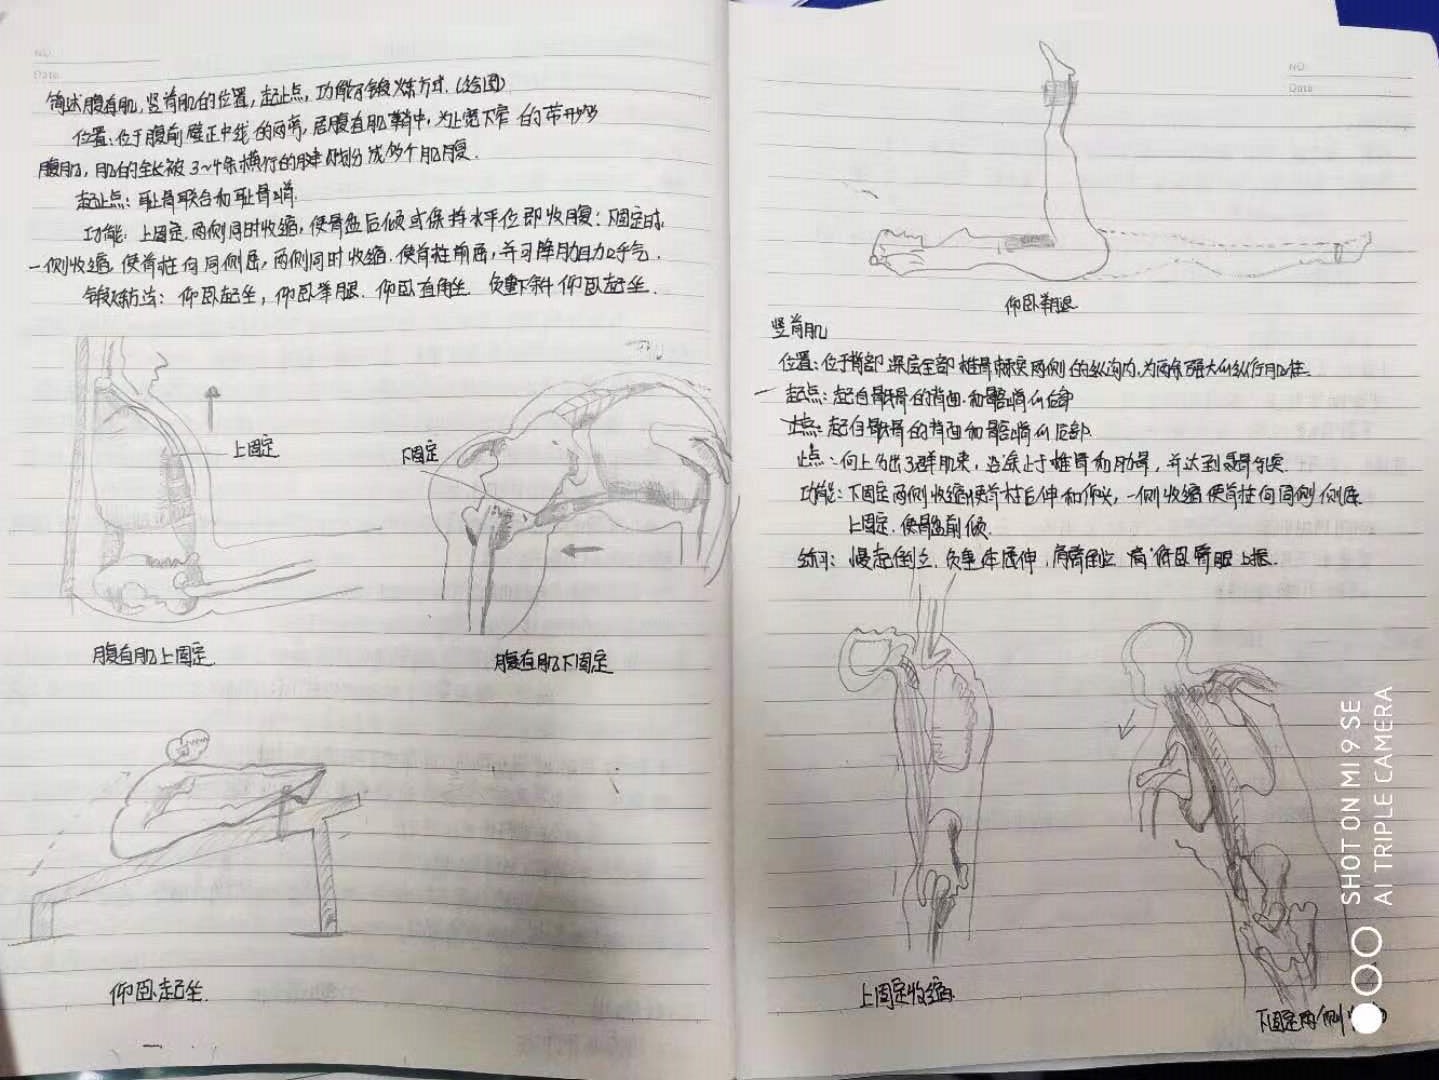 NO.
Date
简述腹直肌,竖脊肌的位置,起止点,功能及锻炼方式.(绘图)
位置:位于腹前壁正中线的两旁,居腹直肌鞘中,为上宽下窄的带形多
腹肌,肌的全长被3~4条横行的腱划分成多个肌腹.
起止点:耻骨联合和耻骨嵴.
功能:上固定.两侧同时收缩,使骨盆后倾或保持水平位即收腹:下固定时.
一侧收缩,使脊柱向同侧屈,两侧同时收缩.使脊柱前屈,并可降肋助力呼气.
锻炼方法:仰卧起坐,仰卧举腿.仰卧直角坐.负重下斜仰卧起坐.
上固定
下固定
腹直肌上固定.
腹直肌下固定
仰卧起坐.
NO.
Date
仰卧举腿
竖脊肌
位置:位于背部深层全部椎骨棘突两侧的纵沟内,为两条强大的纵行肌柱.
起点:起自骶骨的背面.和髂嵴的后部
止点:起自骶骨的背面和髂嵴的后部.
止点:向上分出3群肌束,沿途止于椎骨和肋骨,并达到颞骨乳突.
功能:下固定两侧收缩使脊柱后伸和仰头,一侧收缩使脊柱向同侧侧屈.
上固定.使骨盆前倾.
练习:慢起倒立.负重体屈伸,肩臂倒立 俯卧臂腿上振.
上固定收缩.
下固定两侧
SHOT ON MI 9 SE
AI TRIPLE CAMERA